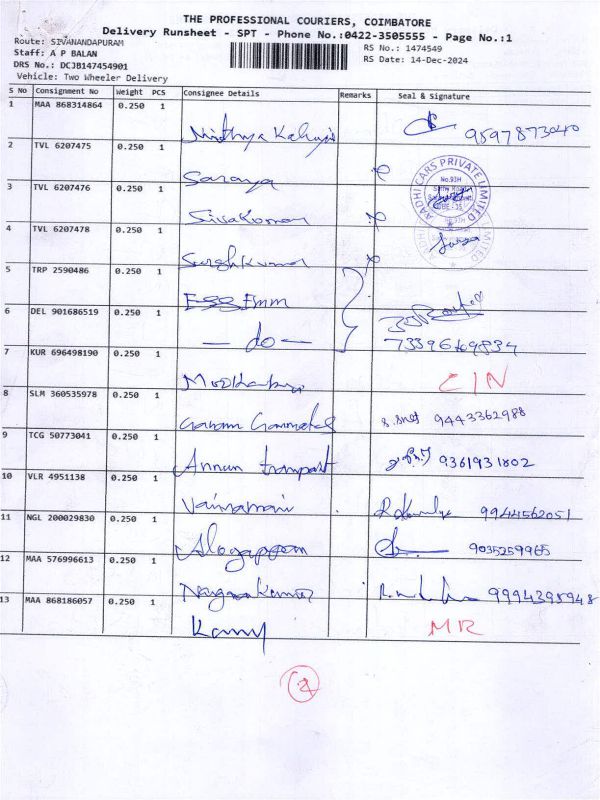 THE PROFESSIONAL COURIERS, COIMBATORE
Delivery Runsheet - SPT - Phone No.:0422-3505555 - Page No.:1
Route: SIVANANDAPURAM
Staff: A P BALAN
DRS No.: DCJB147454901
Vehicle: Two Wheeler Delivery
RS No.: 1474549
RS Date: 14-Dec-2024
S No Consignment No Weight PCS Consignee Details Remarks Seal & Signature
1 MAA 868314864 0.250 1
9597873040
2 TVL 6207475 0.250 1
Saranya
AADHI CARS PRIVATE LIMITED
No.93H
3 TVL 6207476 0.250 1
Sivakumar
4 TVL 6207478 0.250 1
Sureshkumar
5 TRP 2590486 0.250 1
Emm
6 DEL 901686519 0.250 1
— do —
7339669834
7 KUR 696498190 0.250 1
CIN
8 SLM 360535978 0.250 1
9443362988
9 TCG 50773041 0.250 1
Annun transport
9361931802
10 VLR 4951138 0.250 1
Vairamani
9944562051
11 NGL 200029830 0.250 1
Alagappan
9035259965
12 MAA 576996613 0.250 1
9994395948
13 MAA 868186057 0.250 1
MR